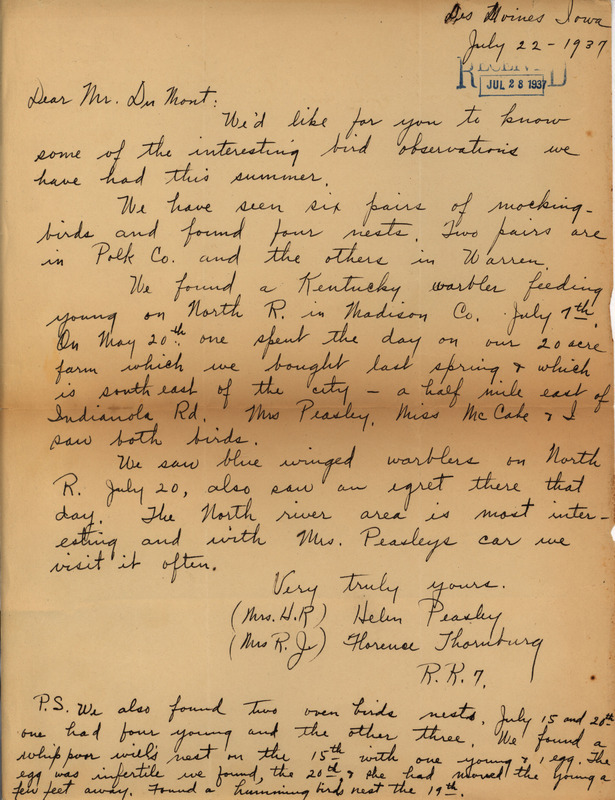 Des Moines Iowa
July 22-1937
RECEIVED
JUL 28 1937
Dear Mr. Du Mont:
We'd like for you to know
some of the interesting bird observations we
have had this summer.
We have seen six pairs of mocking-
birds and found four nests. Two pairs are
in Polk Co. and the others in Warren.
We found a Kentucky warbler feeding
young on North R. in Madison Co. July 7th.
On May 20th one spent the day on our 20 acre
farm which we bought last spring & which
is south east of the city - a half mile east of
Indianola Rd. Mrs Peasley, Miss McCabe & I
saw both birds.
We saw blue winged warblers on North
R. July 20, also saw an egret there that
day. The North river area is most inter-
esting and with Mrs. Peasleys car we
visit it often.
Very truly yours.
(Mrs. H.R) Helen Peasley
(Mrs R. J.) Florence Thornburg
R.R.7.
P.S. We also found two oven birds nests. July 15 and 20th
one had four young and the other three. We found a
whip poor will's nest on the 15th with one young & 1 egg. The
egg was infertile we found, the 20th, & she had moved the young a
few feet away. Found a humming birds nest the 19th.